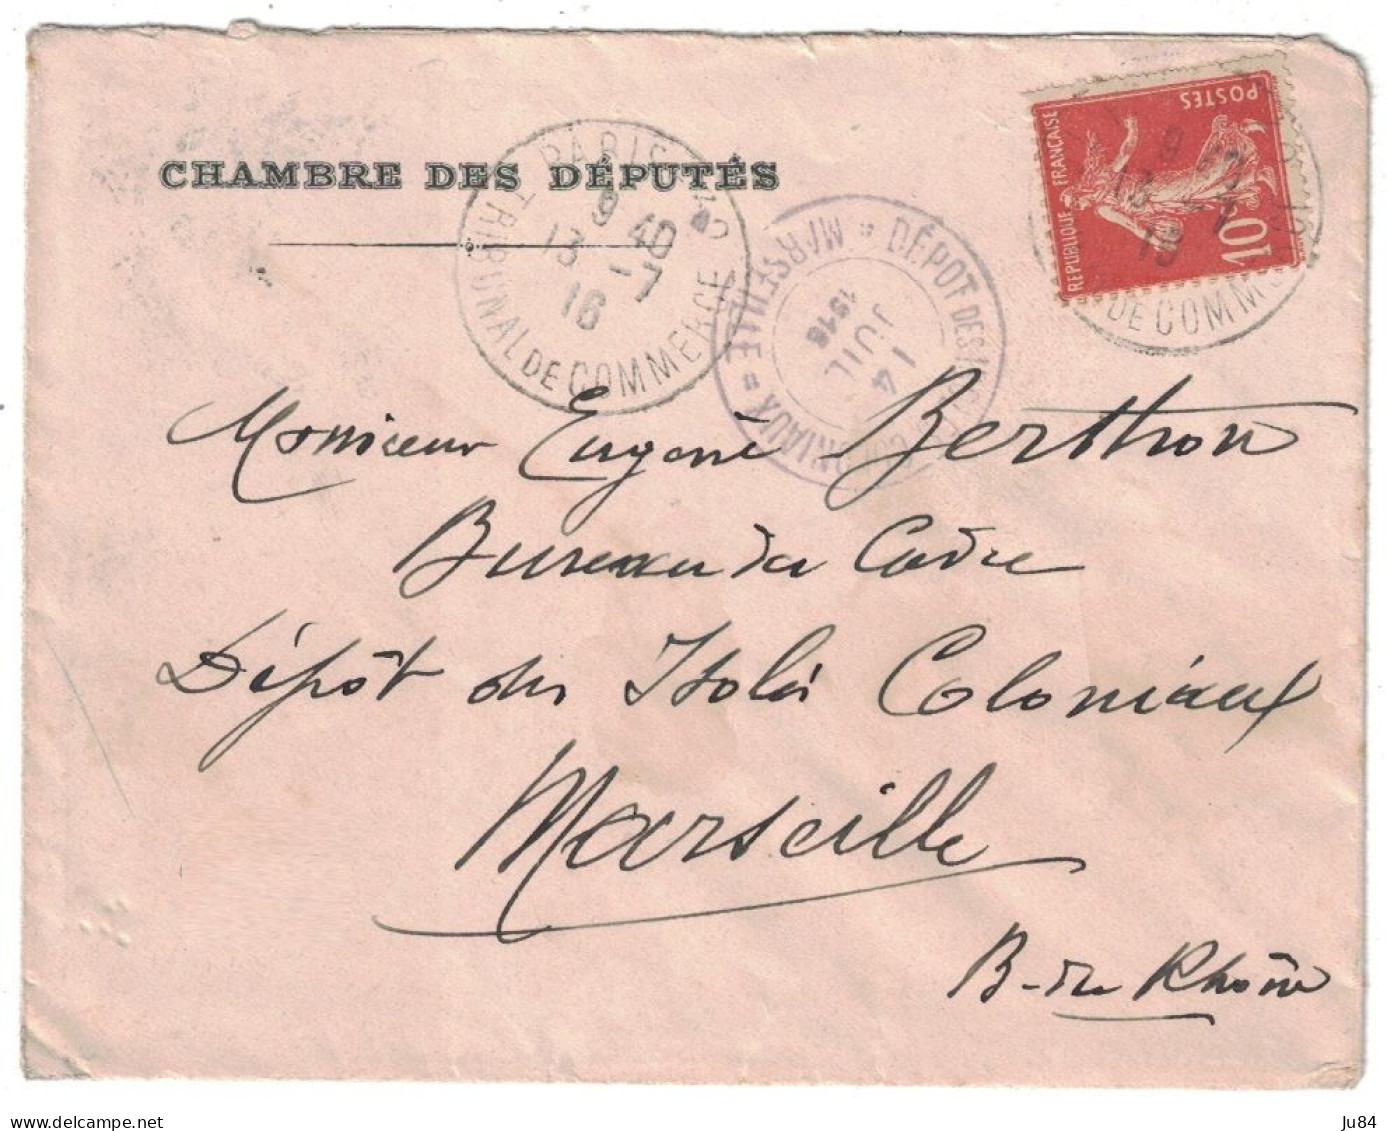 CHAMBRE DES DÉPUTÉS
PARIS
9 40
13 - 7
16
TRIBUNAL DE COMMERCE
DÉPOT DES ISOLÉS COLONIAUX = MARSEILLE =
14
JUIL
1916
REPUBLIQUE FRANÇAISE
POSTES
10c
9 40
13 - 7
16
DE COMM
Monsieur Eugène Berthon
Bureau du Cadre
Dépôt des Isolés Coloniaux
Marseille
B-du Rhône
delcampe.net
Ju84